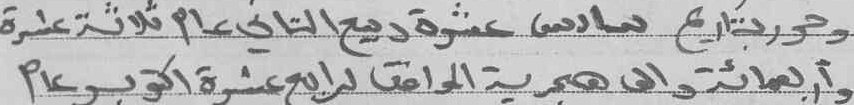 وحرر بتاريخ سادس عشرة ربيع الثاني عام ثلاثة عشرة
وأربعمائة والف هجرية الموافق لرابع عشرة اكتوبر عام